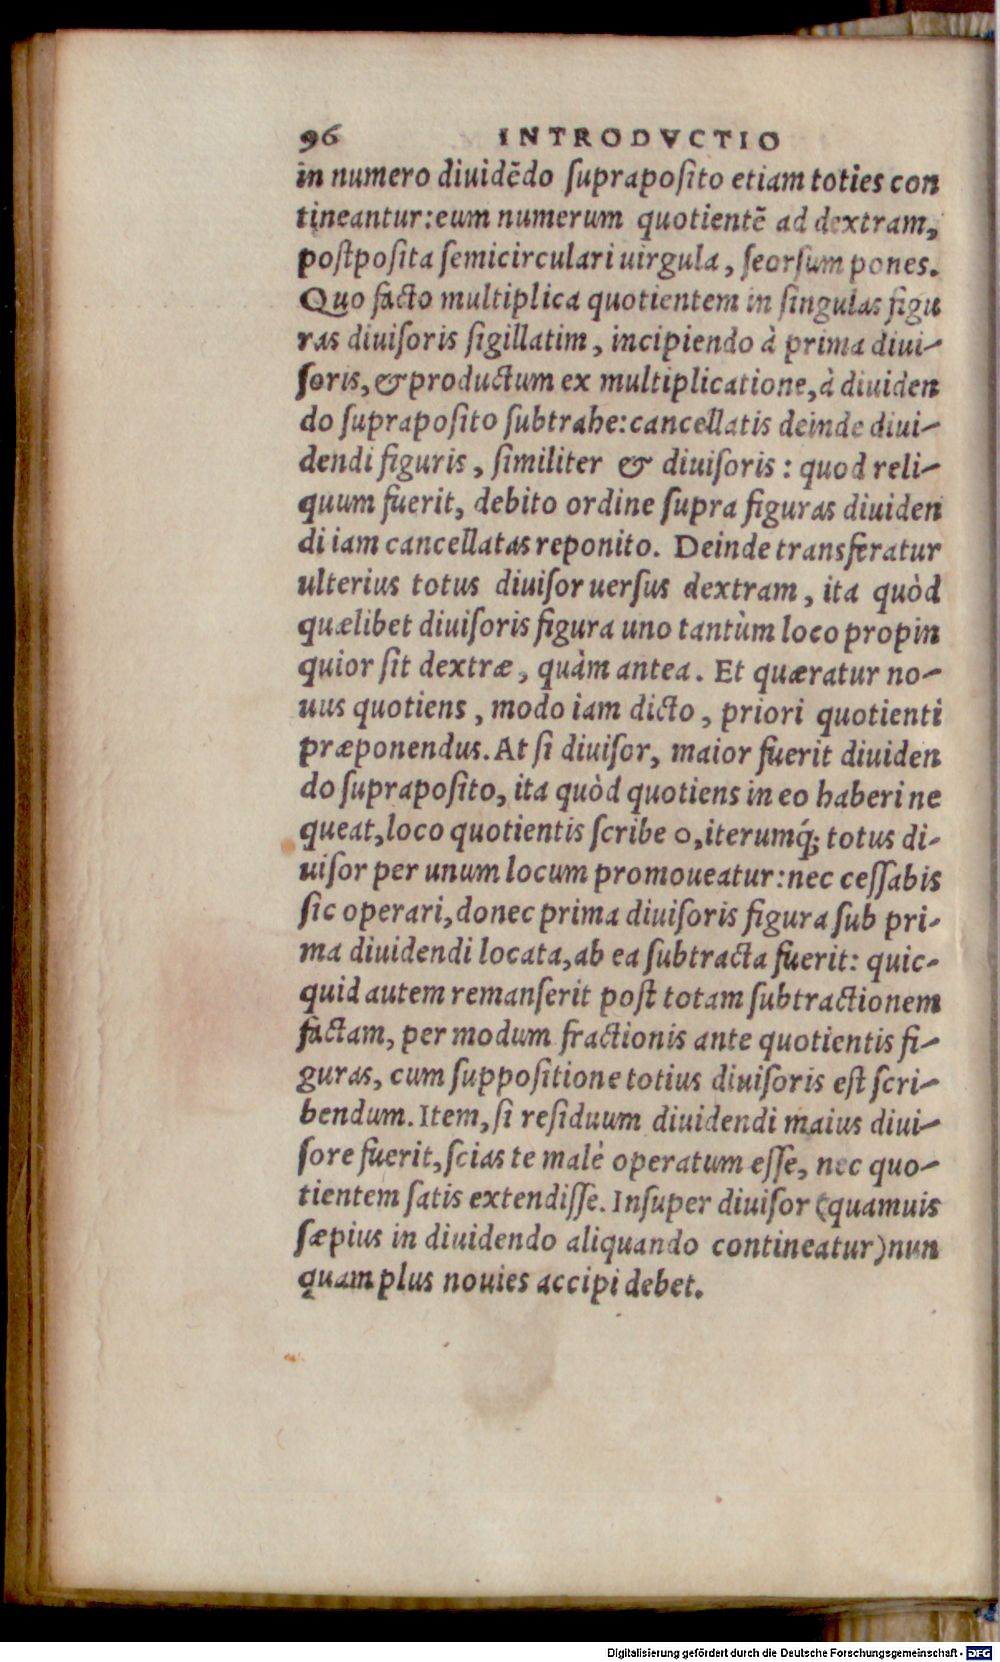 96 INTRODVCTIO
in numero diuidẽdo ſuprapoſito etiam toties con
tineantur: eum numerum quotientẽ ad dextram,
poſtpoſita ſemicirculari uirgula, ſeorſum pones.
Quo facto multiplica quotientem in ſingulas figu
ras diuiſoris ſigillatim, incipiendo à prima diui-
ſoris, & productum ex multiplicatione, à diuiden
do ſuprapoſito ſubtrahe: cancellatis deinde diui-
dendi figuris, ſimiliter & diuiſoris: quod reli-
quum fuerit, debito ordine ſupra figuras diuiden
di iam cancellatas reponito. Deinde transferatur
ulterius totus diuiſor uerſus dextram, ita quòd
quælibet diuiſoris figura uno tantùm loco propin
quior ſit dextræ, quàm antea. Et quæratur no-
uus quotiens, modo iam dicto, priori quotienti
præponendus. At ſi diuiſor, maior fuerit diuiden
do ſuprapoſito, ita quòd quotiens in eo haberi ne
queat, loco quotientis ſcribe 0, iterumq́; totus di-
uiſor per unum locum promoueatur: nec ceſſabis
ſic operari, donec prima diuiſoris figura ſub pri-
ma diuidendi locata, ab ea ſubtracta fuerit: quic-
quid autem remanſerit poſt totam ſubtractionem
factam, per modum fractionis ante quotientis fi-
guras, cum ſuppoſitione totius diuiſoris eſt ſcri-
bendum. Item, ſi reſiduum diuidendi maius diui-
ſore fuerit, ſcias te malè operatum eſſe, nec quo-
tientem ſatis extendiſſe. Inſuper diuiſor (quamuis
ſæpius in diuidendo aliquando contineatur) nun
quam plus nouies accipi debet.
Digitalisierung gefördert durch die Deutsche Forschungsgemeinschaft - DFG